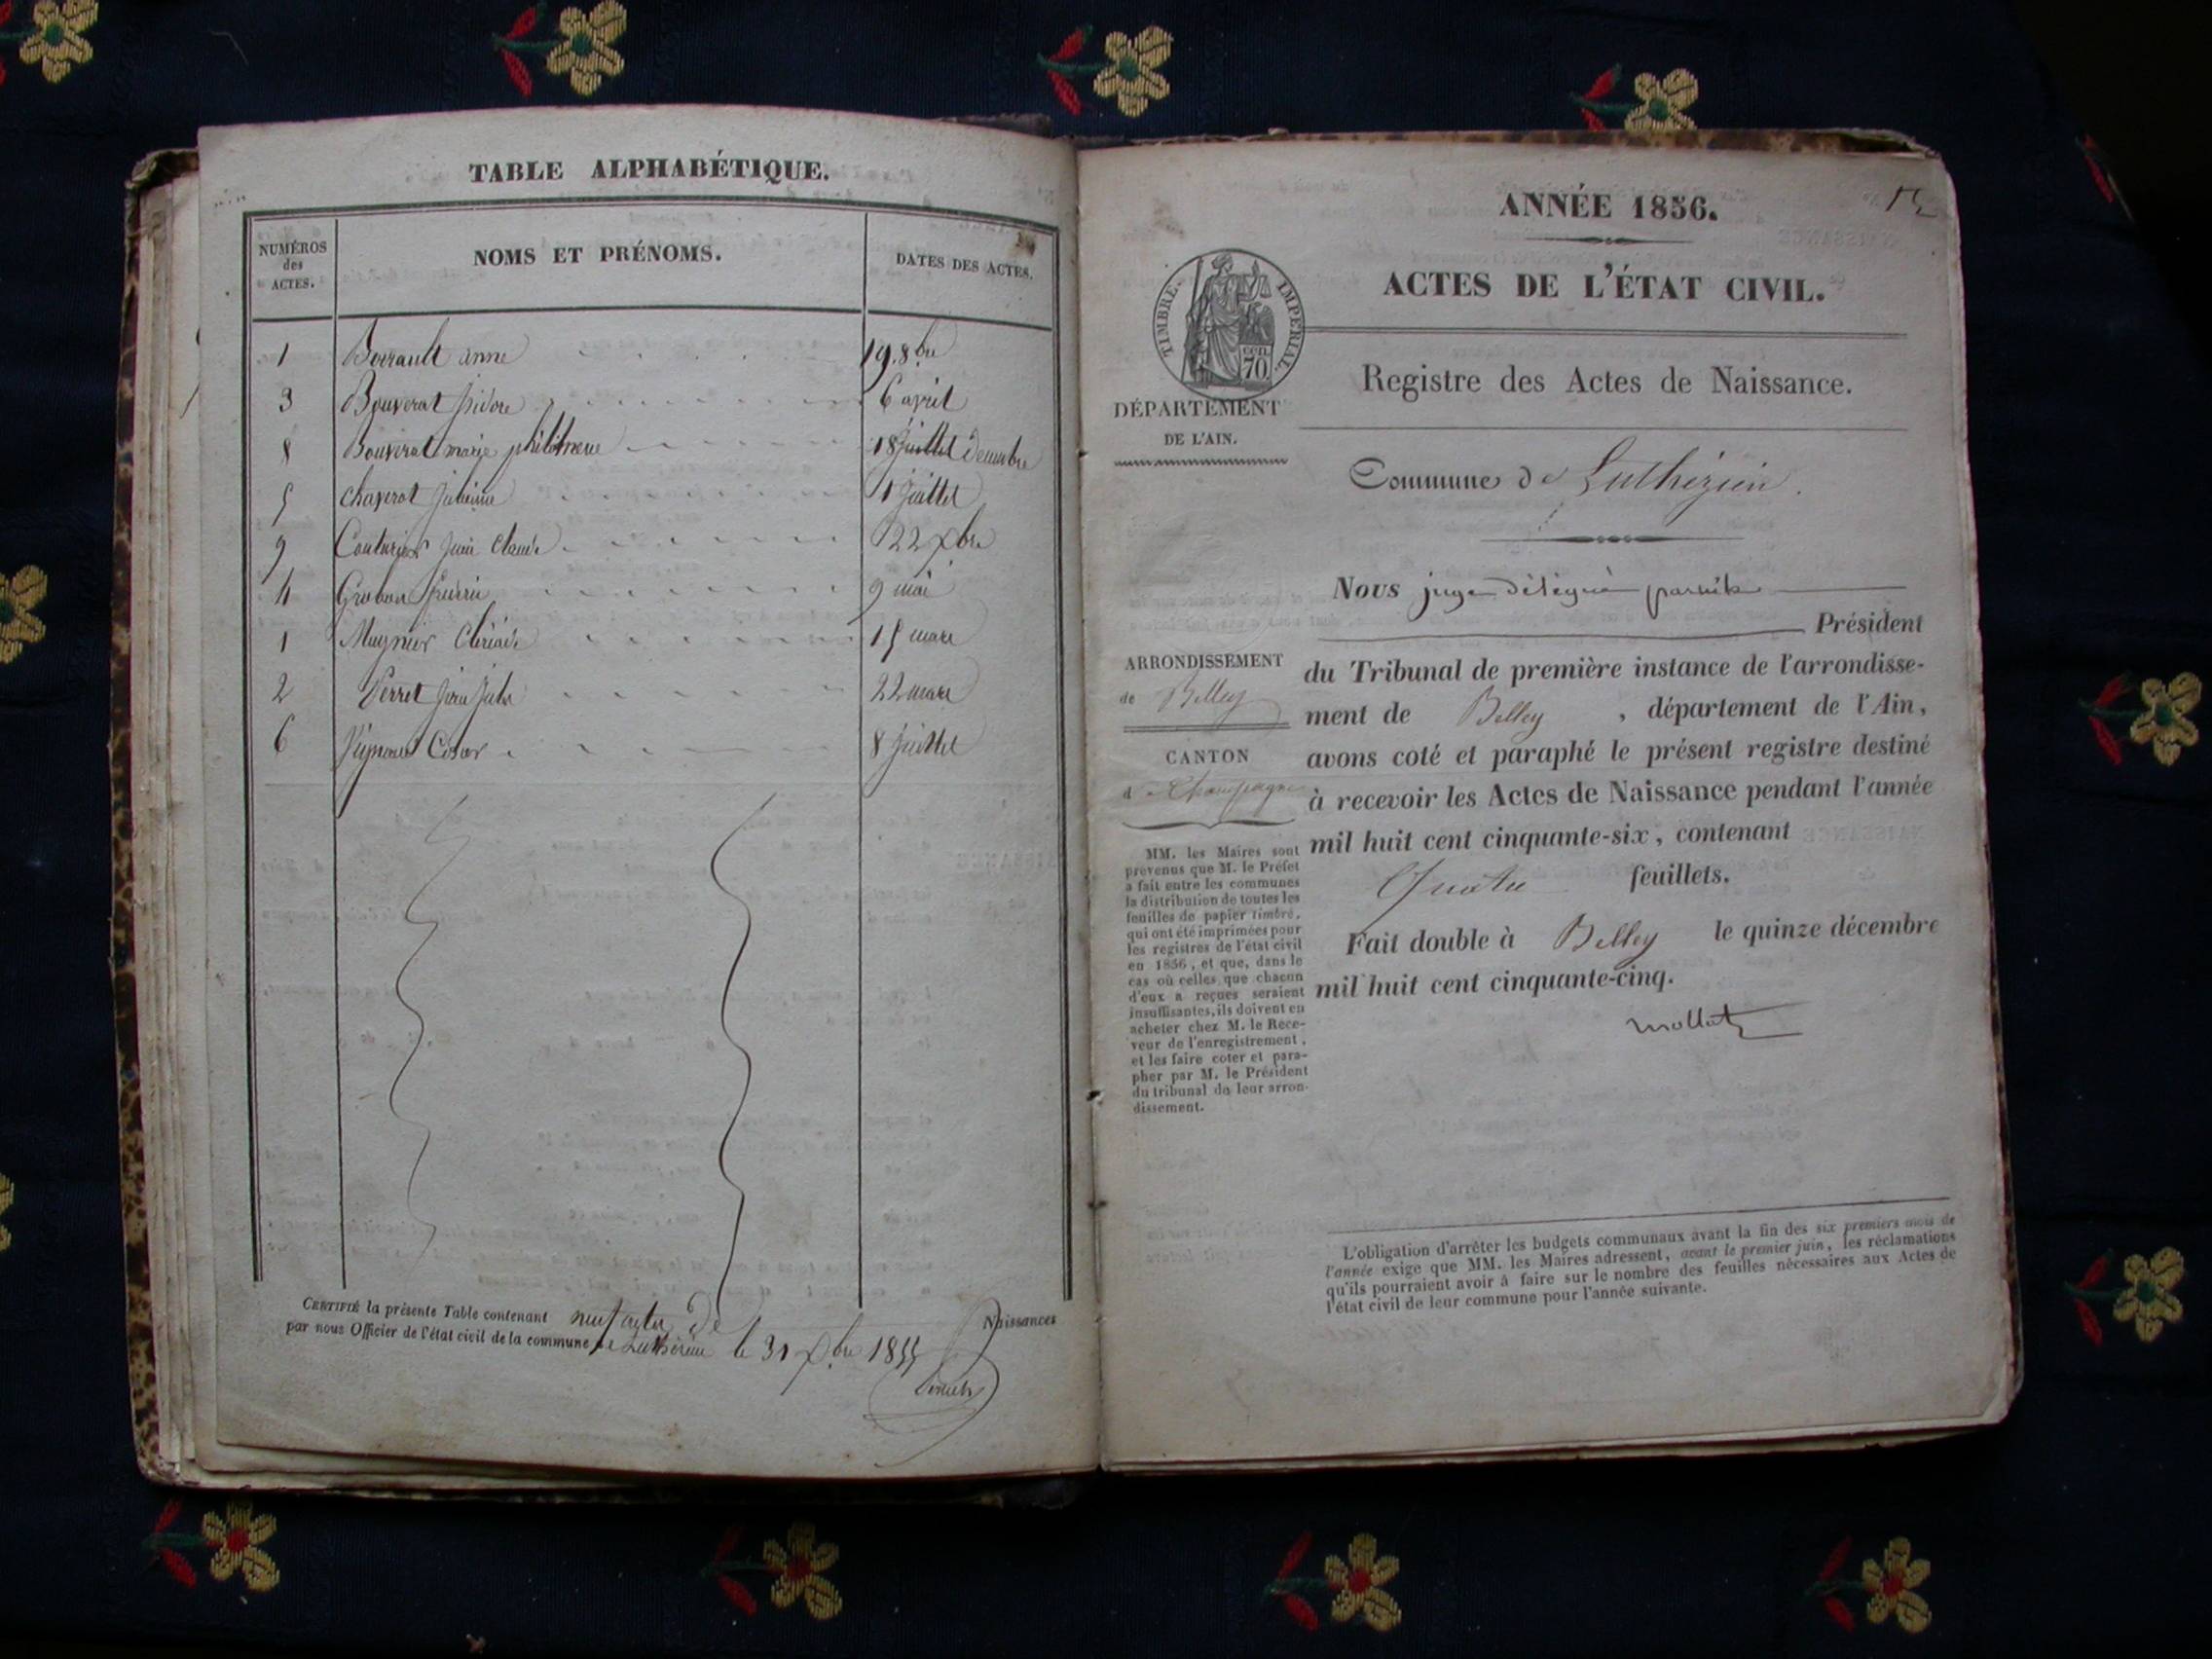 TABLE ALPHABÉTIQUE.
NUMÉROS
des
ACTES.
NOMS ET PRÉNOMS.
DATES DES ACTES.
1 Borrault anne 19. 8bre
3 Bouverat isidore 6 avril
8 Bouverat marie philomene 18 juillet Decembre
5 Chaverot 1 juillet
9 Couturier jean Claude 22 Xbre
4 Grobon 9 mai
1 Mugnier 15 mars
2 Perret jean 22 mars
6 César 8 juillet
CERTIFIÉ la présente Table contenant neuf actes de Naissances
par nous Officier de l'état civil de la commune de Luthézieu le 31 Xbre 1855
ANNÉE 1856.
ACTES DE L'ÉTAT CIVIL.
TIMBRE IMPÉRIAL
CEN.
70
DÉPARTEMENT
DE L'AIN.
Registre des Actes de Naissance.
Commune de Luthézieu.
Nous juge délégué par mr le
Président
du Tribunal de première instance de l'arrondisse-
ment de Belley, département de l'Ain,
avons coté et paraphé le présent registre destiné
à recevoir les Actes de Naissance pendant l'année
mil huit cent cinquante-six, contenant
Quatre feuillets.
Fait double à Belley le quinze décembre
mil huit cent cinquante-cinq.
ARRONDISSEMENT
de Belley
CANTON
de Champagne
MM. les Maires sont
prévenus que M. le Préfet
a fait entre les communes
la distribution de toutes les
feuilles de papier timbré,
qui ont été imprimées pour
les registres de l'état civil
en 1856, et que, dans le
cas où celles que chacun
d'eux a reçues seraient
insuffisantes, ils doivent en
acheter chez M. le Rece-
veur de l'enregistrement,
et les faire coter et para-
pher par M. le Président
du tribunal de leur arron-
dissement.
L'obligation d'arrêter les budgets communaux avant la fin des six premiers mois de
l'année exige que MM. les Maires adressent, avant le premier juin, les réclamations
qu'ils pourraient avoir à faire sur le nombre des feuilles nécessaires aux Actes de
l'état civil de leur commune pour l'année suivante.